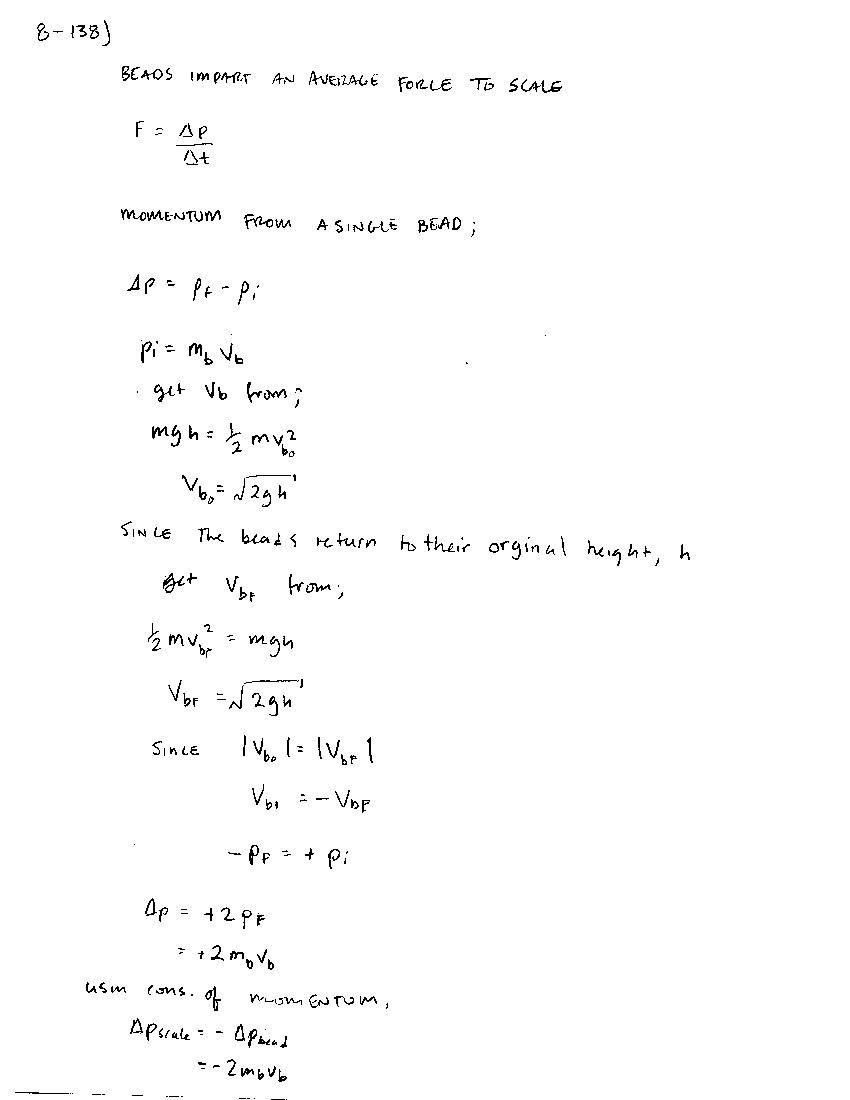 8-138)
BEADS IMPART AN AVERAGE FORCE TO SCALE
F = Δp
Δt
MOMENTUM FROM A SINGLE BEAD;
Δp = pf - pi
pi = mb Vb
get Vb from;
mgh = 1/2 mvbo²
Vbo = √2gh
SINCE The beads return to their orginal height, h
get VbF from;
1/2 mvbF² = mgh
VbF = √2gh
SINCE |Vbo| = |VbF|
Vbi = - VbF
- PF = + pi
Δp = +2pF
= +2mbVb
cons. of MOMENTUM,
Δpscale = - Δpbead
= -2mbvb